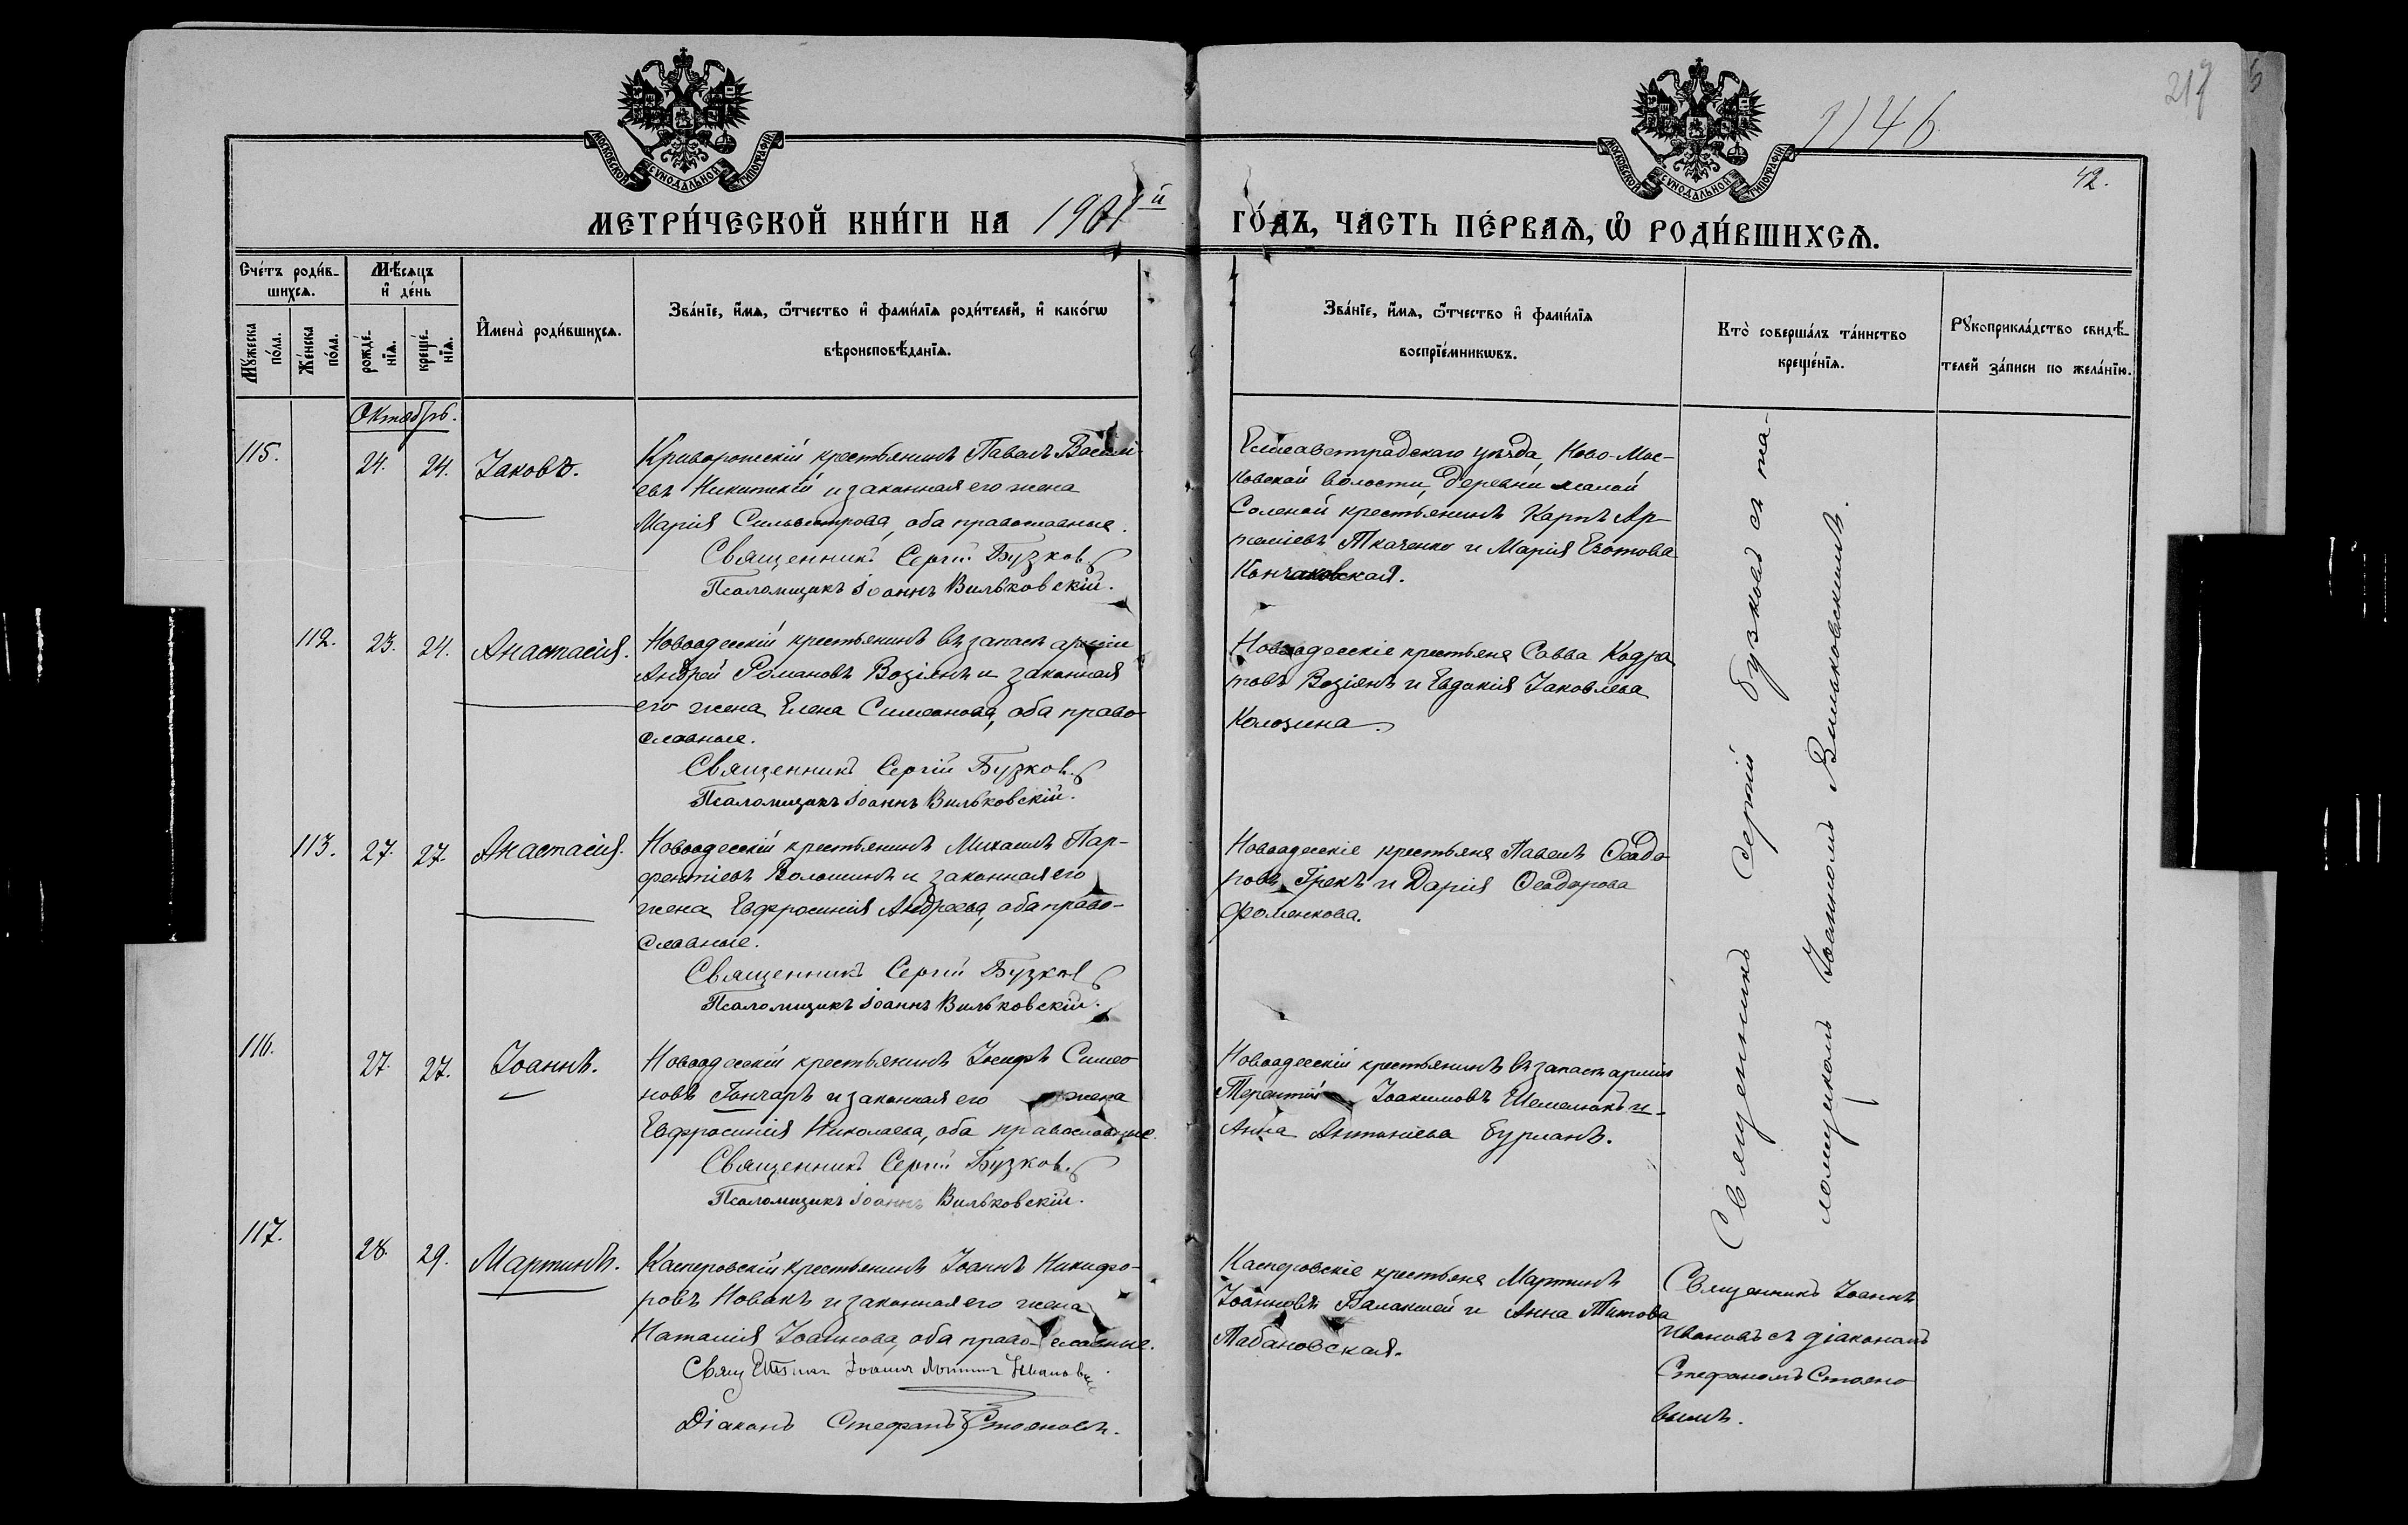 1146
217
5
42.
МОСКОВСКОЙ СУНОДАЛЬНОЙ ТИПОГРАФІИ
МОСКОВСКОЙ СУНОДАЛЬНОЙ ТИПОГРАФІИ
МЕТРИ́ЧЕСКОЙ КНИ́ГИ НА 1901й ГО́ДЪ, ЧА́СТЬ ПЕ́РВАѦ, Ѡ҆ РОДИ́ВШИХСѦ.
Сче́тъ роди́в-
шихсѧ.
Мꙋ́жеска
по́ла.
Же́нска
по́ла.
Мѣ́сѧцъ
и҆ де́нь
рожде́-
нїѧ.
креще́-
нїѧ.
И҆мена̀ роди́вшихсѧ.
Зва́нїе, и҆́мѧ, ѻ҆́тчество и҆ фами́лїѧ роди́телей, и҆ како́гѡ
вѣроисповѣ́данїѧ.
Зва́нїе, и҆́мѧ, ѻ҆́тчество и҆ фами́лїѧ
воспрїе́мникѡвъ.
Кто̀ соверша́лъ та́инство
креще́нїѧ.
Рꙋкоприкла́дство свидѣ́-
телей за́писи по жела́нїю.
Октябрь.
115. 24. 24. Іаковъ.
Криворожскій крестьянинъ Павелъ Василі-
евъ Никитскій и законная его жена
Марія Сильвестрова, оба православные.
Священникъ Сергій Бузков
Псаломщикъ Іоаннъ Вильковскій.
Елисаветградскаго уѣзда, Ново-Мос-
ковской волости, деревни малой
Соленой крестьянинъ Карпъ Ар-
теміевъ Ткаченко и Марія Изотова
Кончаковская.
112. 23. 24. Анастасія.
Новоодесскій крестьянинъ въ запасѣ арміи
Андрей Романовъ Возіянъ и законная
его жена Елена Симеонова, оба право-
славные.
Священникъ Сергій Бузков
Псаломщикъ Іоаннъ Вильковскій.
Новоодесскіе крестьяне Савва Кодра
товъ Возіянъ и Евдокія Іаковлева
Колозина.
113. 27. 27. Анастасія.
Новоодесскій крестьянинъ Михаилъ Пар-
фентіевъ Волошинъ и законная его
жена Евфросинія Андреева, оба право-
славные.
Священникъ Сергій Бузков
Псаломщикъ Іоаннъ Вильковскій.
Новоодесскіе крестьяне Павелъ Ѳеодо
ровъ Грекъ и Дарія Ѳеодорова
Фоменкова.
116. 27. 27. Іоаннъ.
Новоодесскій крестьянинъ Іосифъ Симео
новъ Гончаръ и законная его жена
Евфросинія Николаева, оба православные.
Священникъ Сергій Бузков
Псаломщикъ Іоаннъ Вильковскій.
Новоодесскій крестьянинъ въ запасѣ арміи
Терентій Іоакимовъ Шемелюкъ и
Анна Антоніева Бурланъ.
Священникъ Сергій Бузковъ съ пса-
ломщикомъ Іоанномъ Вильковскимъ.
117. 28. 29. Мартинъ.
Касперовскій крестьянинъ Іоаннъ Никифо-
ровъ Новакъ и законная его жена
Наталія Іоаннова, оба право-славные.
Священникъ Іоаннъ Ивановъ
Діаконъ Стефанъ Стояновъ.
Касперовскіе крестьяне Мартинъ
Іоанновъ Балакшей и Анна Титова
Табановская.
Священникъ Іоаннъ
Ивановъ съ діакономъ
Стефаномъ Стояно
вымъ.